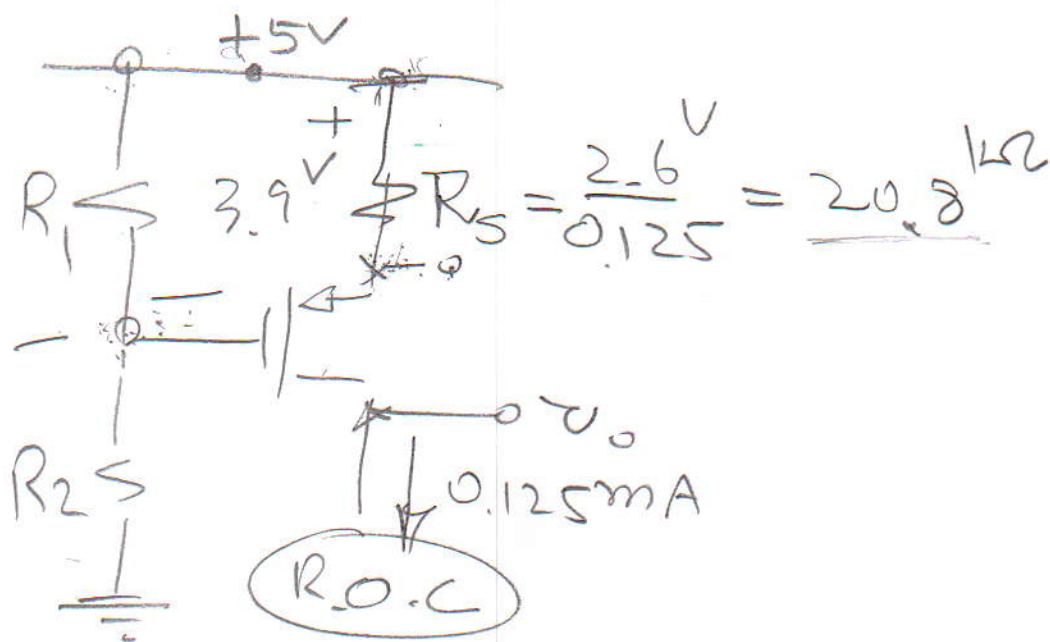 +5V
+
R1 3.9V RS = 2.6V / 0.125 = 20.8 kΩ
-
R2
vo
0.125mA
R.O.C